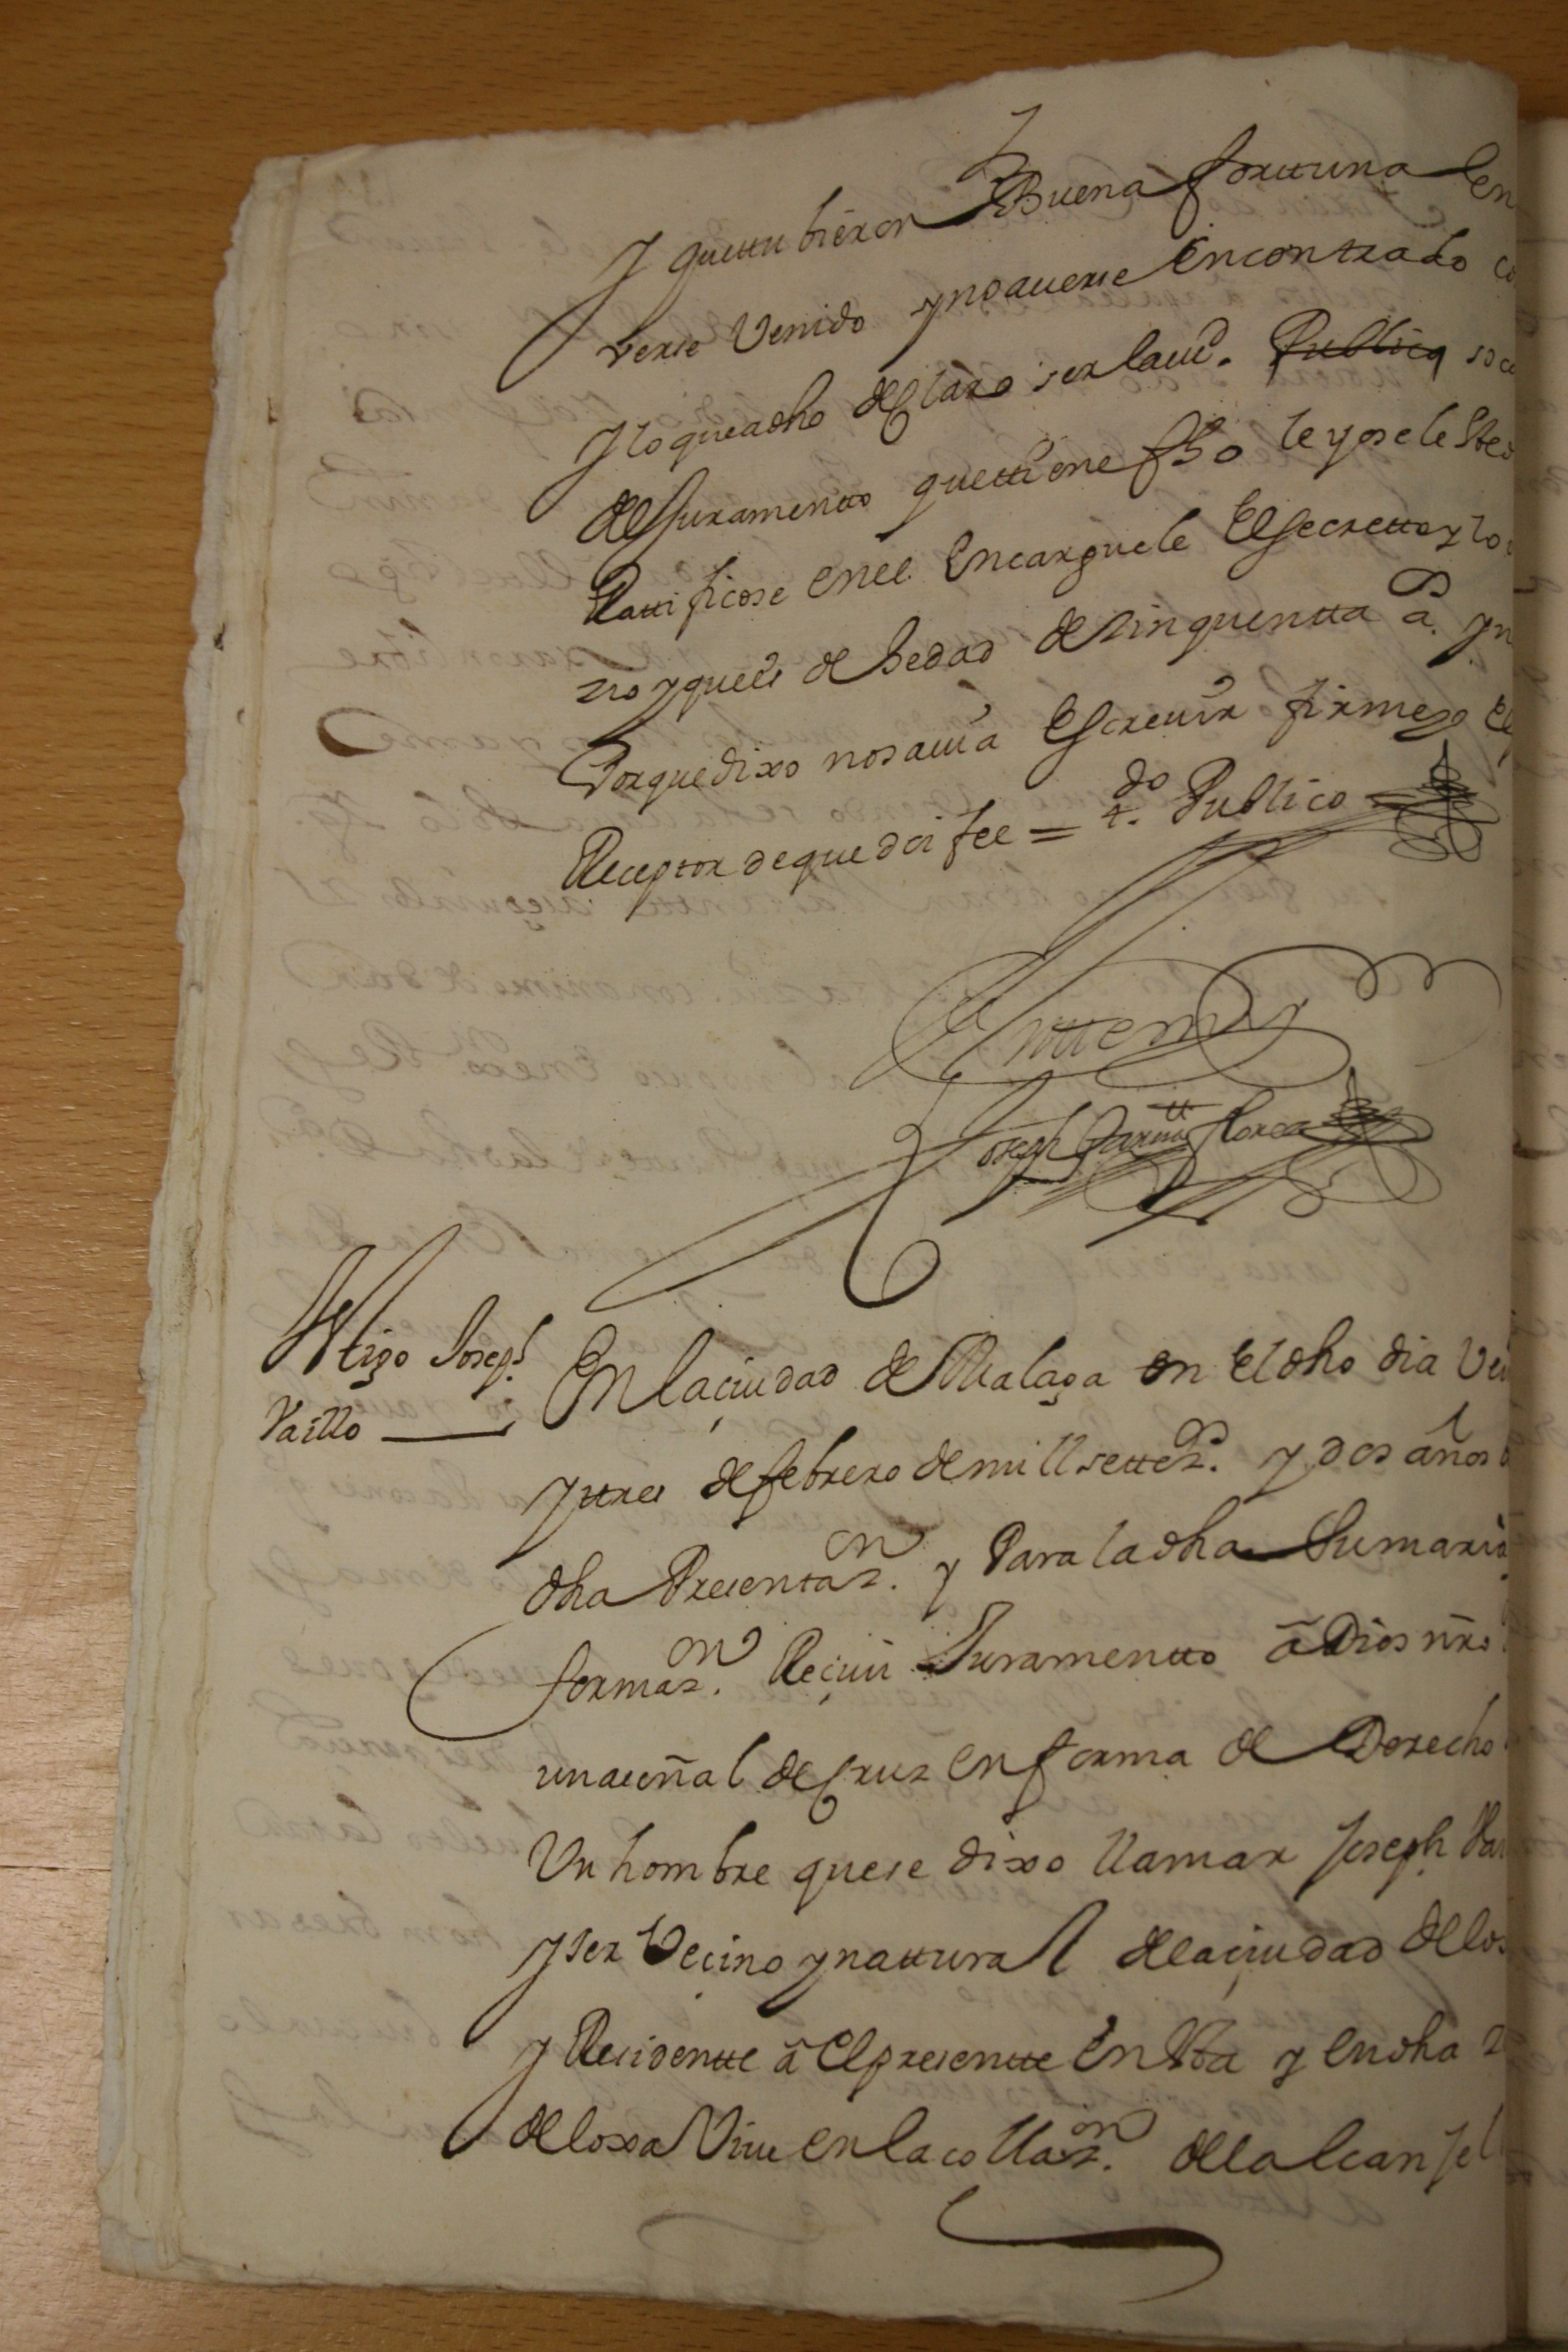 y quettubieron Buena forttuna en
verse Venido y no averse Encontrado
y lo que a dho declaro ser la verd. Publico so
del Juramentto que ttiene fho leyosele
Rattificose en el Encarguele El secretto y lo
zio y que es de hedad de zinquentta as.
Porque dixo no savia Escrevir firmelo El
Receptor de que doi fee = tdo. Publico
Antte my
Joseph Garzia florez
Ttigo Joseph
Vaillo
En la çiudad de Malaga en El dho dia Vei
y ttres de febrero de mill settezs. y dos años
dha Presentazn. y Para la dha Sumaria
formazn. Reçivi Juramentto a Dios nro
una señal de Cruz en forma de Derecho
Un hombre que se dixo llamar Joseph Vai
y ser Veçino y nattural de la çiudad de lo
y Residentte a El presentte En Esta y en dha
de loxa Vive en la collazn. de la